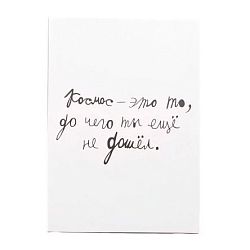 Космос – это то,
до чего ты ещё
не дошёл.